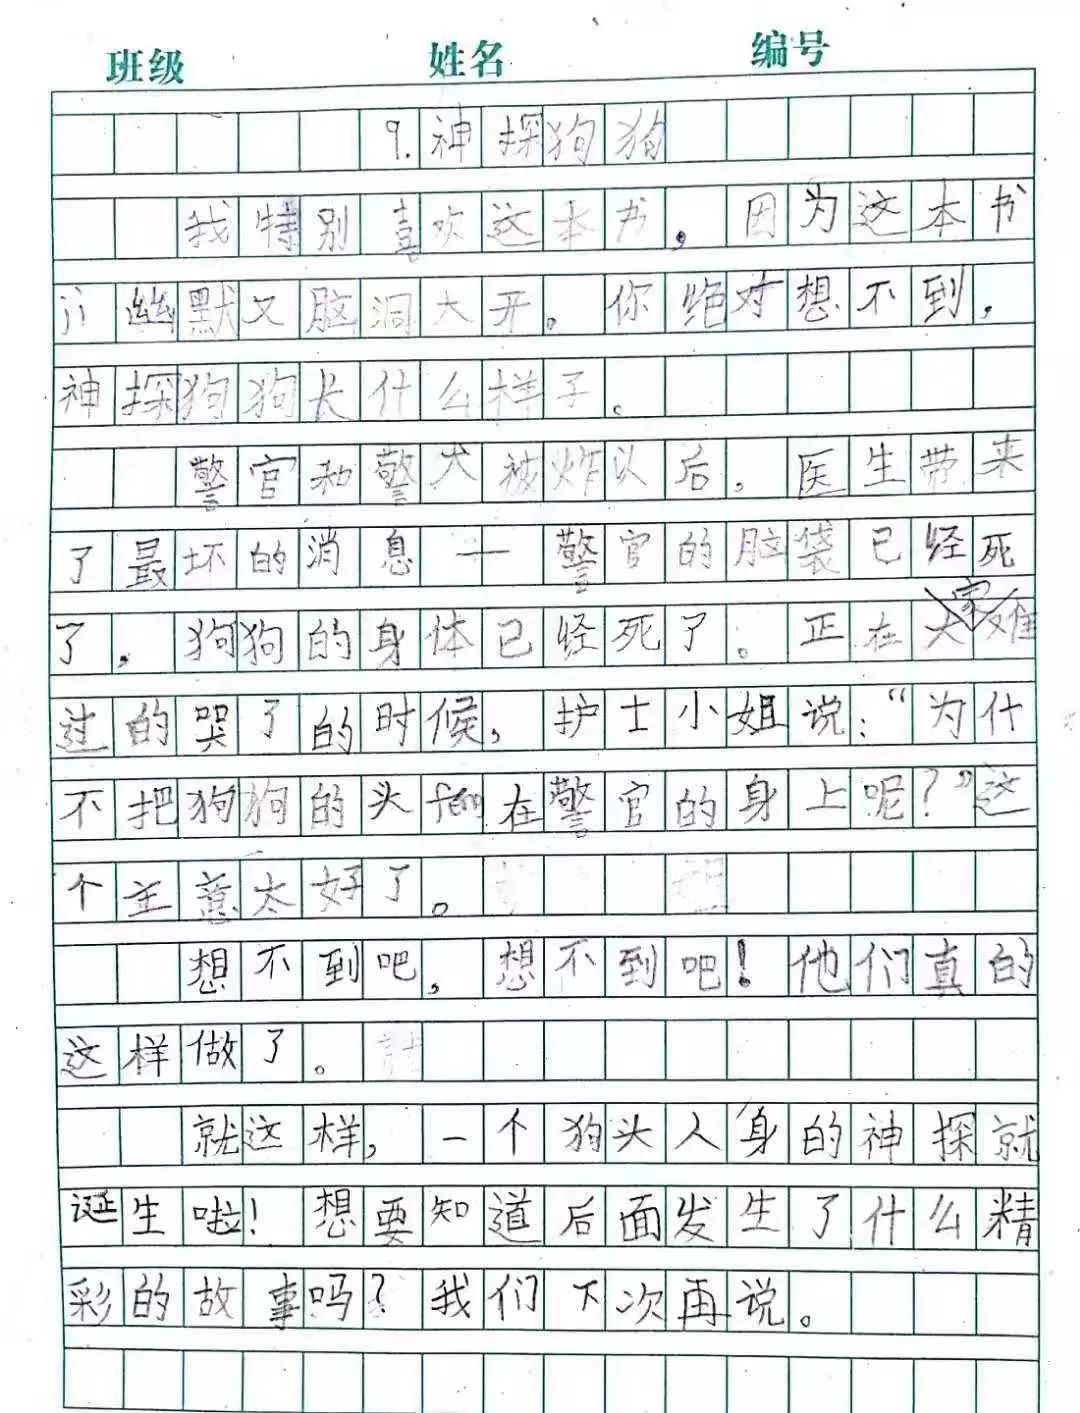 班级 姓名 编号
9.神探狗狗
我特别喜欢这本书，因为这本书
ji幽默又脑洞大开。你绝对想不到，
神探狗狗长什么样子。
警官和警犬被炸以后，医生带来
了最坏的消息一警官的脑袋已经死
了，狗狗的身体已经死了。正在大家难
过的哭了的时候，护士小姐说：“为什
不把狗狗的头fen在警官的身上呢？”这
个主意太好了。
想不到吧，想不到吧！他们真的
这样做了。
就这样，一个狗头人身的神探就
诞生啦！想要知道后面发生了什么精
彩的故事吗？我们下次再说。